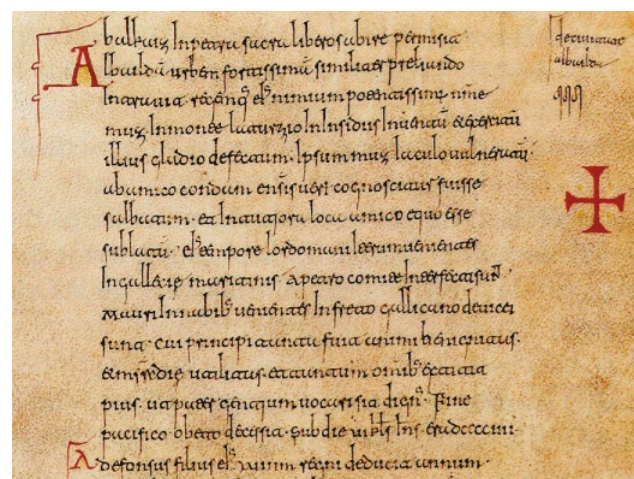 bulkaiz In petra sacra liberos abire permisit
Albaildā urbem fortissimā similiter preliando
Intravit. regēnq; eı͛ nimium potentissimū nōne
muz Inmonte laturzio In Insidiis Inventū &exercitū
illius gladio defectum. Ipsum muz Iaculo vulneratū.
ab amico condam ensis veri cognoscitur fuisse
salbatum. et In tutiora loca amico equo esse
sublatū. eı͛ tempore lordomani Iterum venientes
In gallecie maritimis a petro comite Interfecti sunt
Mauri In nabibꝰ venientes In freto gallicano devicti
sunt. cui principi tanta fuit animi benignitas.
&misrdie utilitas. et tantum omibꝰ extitit
pius. ut pater gentium vocari sit dignꝰ. Fine
pacifico obeto decessit. Sub die vi kls Ins era dcccciiii.
Adefonsus filius eı͛ regni deducit annum.